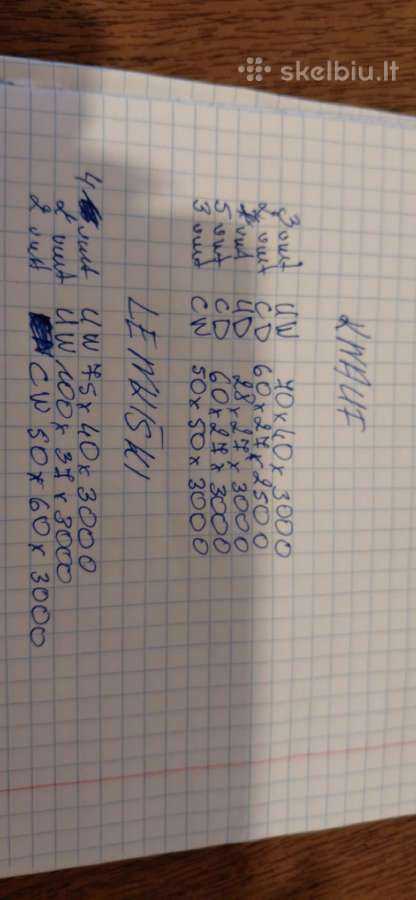 skelbiu.lt
KNAUF
3 vnt UW 70x40x3000
2 vnt CD 60x27x2500
vnt UD 28x27x3000
5 vnt CD 60x27x3000
3 vnt CW 50x50x3000
LENKIŠKI
4 vnt UW 75x40x3000
2 vnt UW 100x37x3000
2 vnt CW 50x60x3000